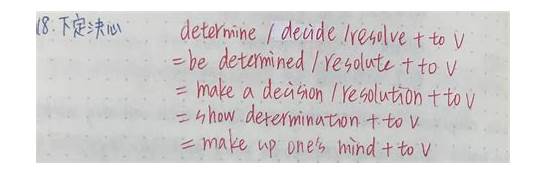 18.下定决心 determine / decide / resolve + to V
= be determined / resolute + to V
= make a decision / resolution + to V
= show determination + to V
= make up one's mind + to V